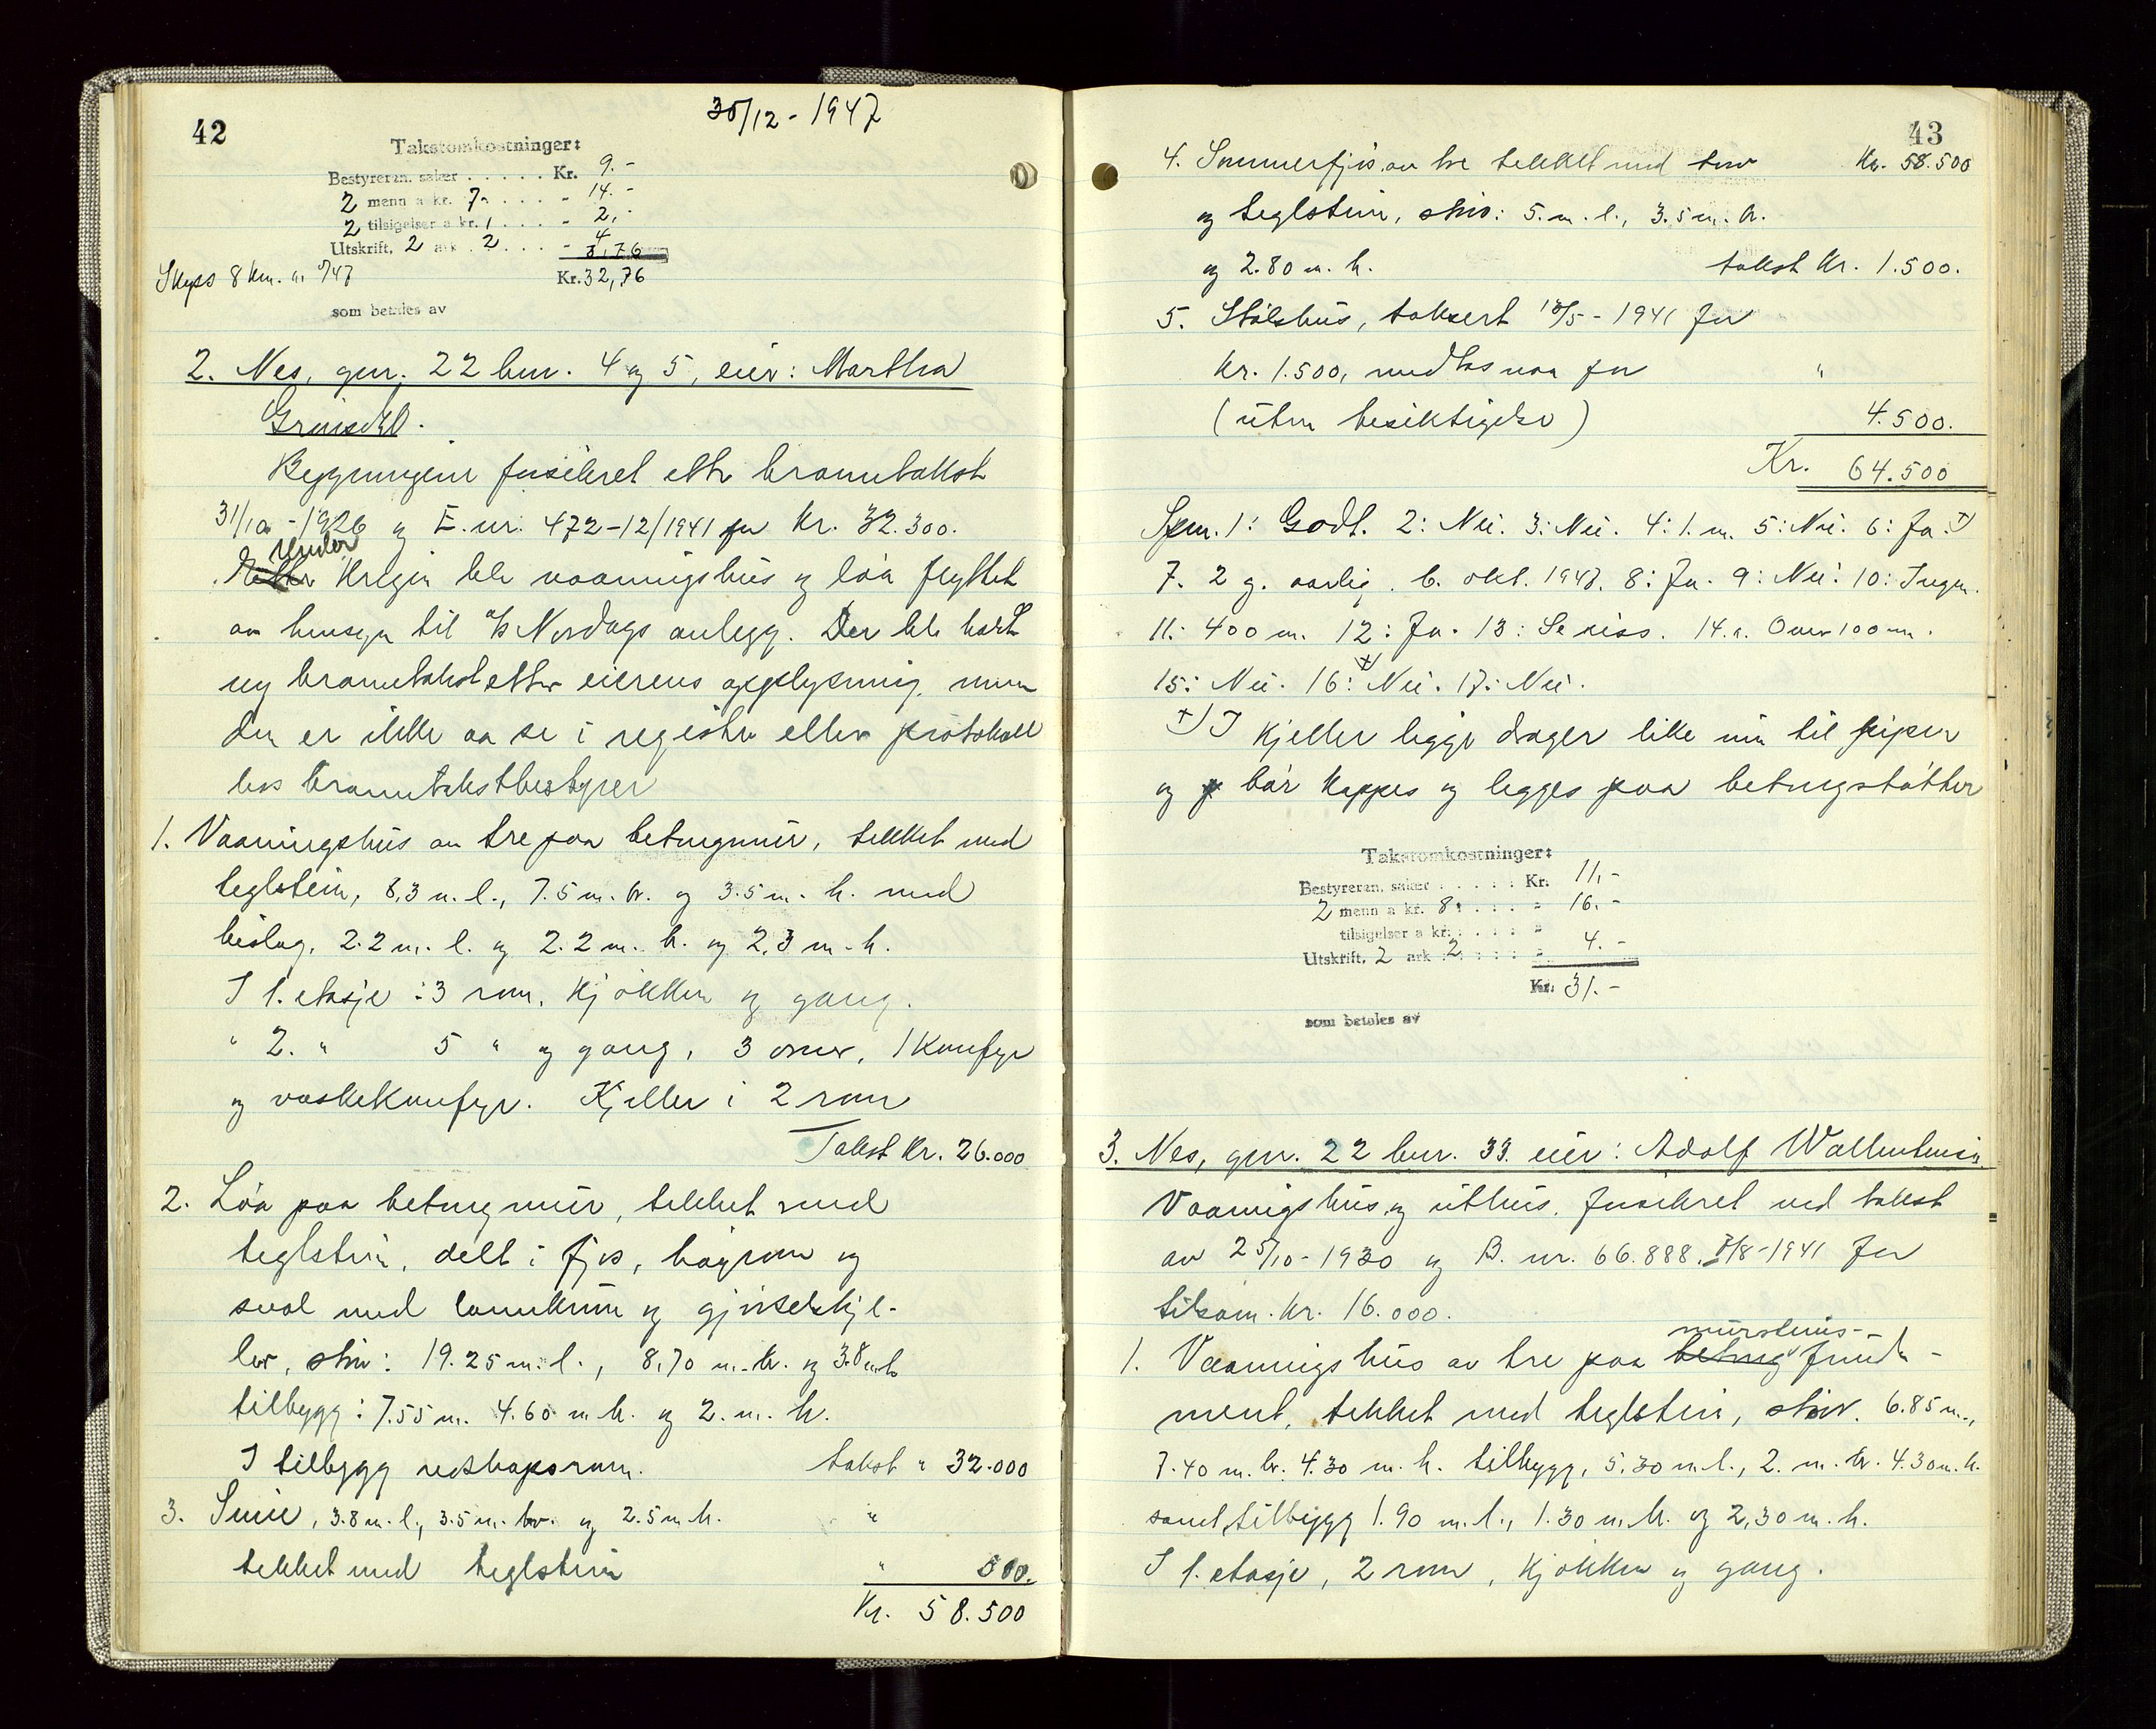 42
30/12 - 1947
Takstomkostninger:
Bestyreren. saker . . . . . Kr. 9.-
2 menn a kr. 7- . . . . - 14.-
2 tilsigelser a kr. 1 . . . - 2,-
Utskrift. 2 ark . 2 . . . - 4
3,76
Skyss 8 km. a. 0/47 Kr. 32,76
som betales av
2. Nes, gnr. 22 bnr. 4 og 5, eier: Martha
Grimsdel.
Bygningene forsikret etter branntakst
31/10 - 1926 og E. nr. 472-12/1941 for kr. 32.300.
Under
Etter krigen ble vaaningshus og løa flyttet
av hensyn til A/S Nordags anlegg. Der ble holdt
ny branntakst etter eierens opplysning, men
den er ikke aa se i register eller protokoll
hos branntakstbestyrer
1. Vaaningshus av tre paa betongmur, tekket med
teglstein, 8,3 m. l., 7.5 m. br. og 3.5 m. h. med
bislag, 2.2 m. l. og 2.2 m. br. og 2,3 m. h.
I 1. etasje : 3 rom, kjøkken og gang.
" 2. " 5 " og gang, 3 ovner, 1 komfyr
og vaskekomfyr. Kjeller i 2 rom
Takst kr. 26.000
2. Løa paa betongmur, tekket med
teglstein, delt i fjøs, høyrom og
sval med landkum og gjødselskjel-
ler, stør: 19.25 m. l., 8,70 m. br. og 3.8 m. h
tilbygg: 7.55 m. 4.60 m br. og 2. m. h.
I tilbygg redskapsrom. takst " 32.000
3. Smie, 3.8 m. l., 3.5 m. br. og 2.5 m h. "
tekket med teglstein " 500.
Kr. 58.500
43
4. Sommerfjøs av tre tekket med torv Kr. 58.500
og teglstein, stør: 5. m. l., 3.5 m. br.
og 2.80 m. h. takst kr. 1.500.
5. Stølshus, taksert 18/5 - 1941 for
kr. 1.500, medtas naa for "
(uten besiktigelse) 4.500.
Kr. 64.500
Spm. 1: Godt. 2: Nei. 3: Nei. 4: 1. m. 5: Nei. 6: Ja. +)
7. 2 g. aarlig. 6. okt. 1947. 8: Ja. 9: Nei. 10: Ingen.
11: 400 m. 12: Ja. 13: Se riss. 14. a. Over 100 m.
15: Nei. 16: +) Nei. 17: Nei.
+) I kjeller ligger drager like inn til piper
og p bør kappes og legges paa betongstøtter
Takstomkostninger:
Bestyreren. saker . . . . : Kr. 11,-
2 menn a kr. 8 : . . . : " 16.-
tilsigelser a kr. . . . . : "
Utskrift. 2 ark 2 : : : : " 4.-
Kr. 31.-
som betales av
3. Nes, gnr. 22 bnr. 33. eier: Adolf Wallentinsen.
Vaaningshus og uthus. forsikret ved takst
av 25/10 - 1930 og B. nr. 66.888. 7/8 - 1941 for
tilsam. kr. 16.000.
murstens-
1. Vaaningshus av tre paa betong funda-
ment, tekket med teglstein, stør. 6.85 m.,
7.40 m. br. 4.30 m. h. tilbygg, 5.30 m l., 2. m. br. 4.30 m. h.
samt tilbygg 1.90 m. l., 1.30 m. br. og 2,30 m. h.
I 1. etasje, 2 rom, kjøkken og gang.